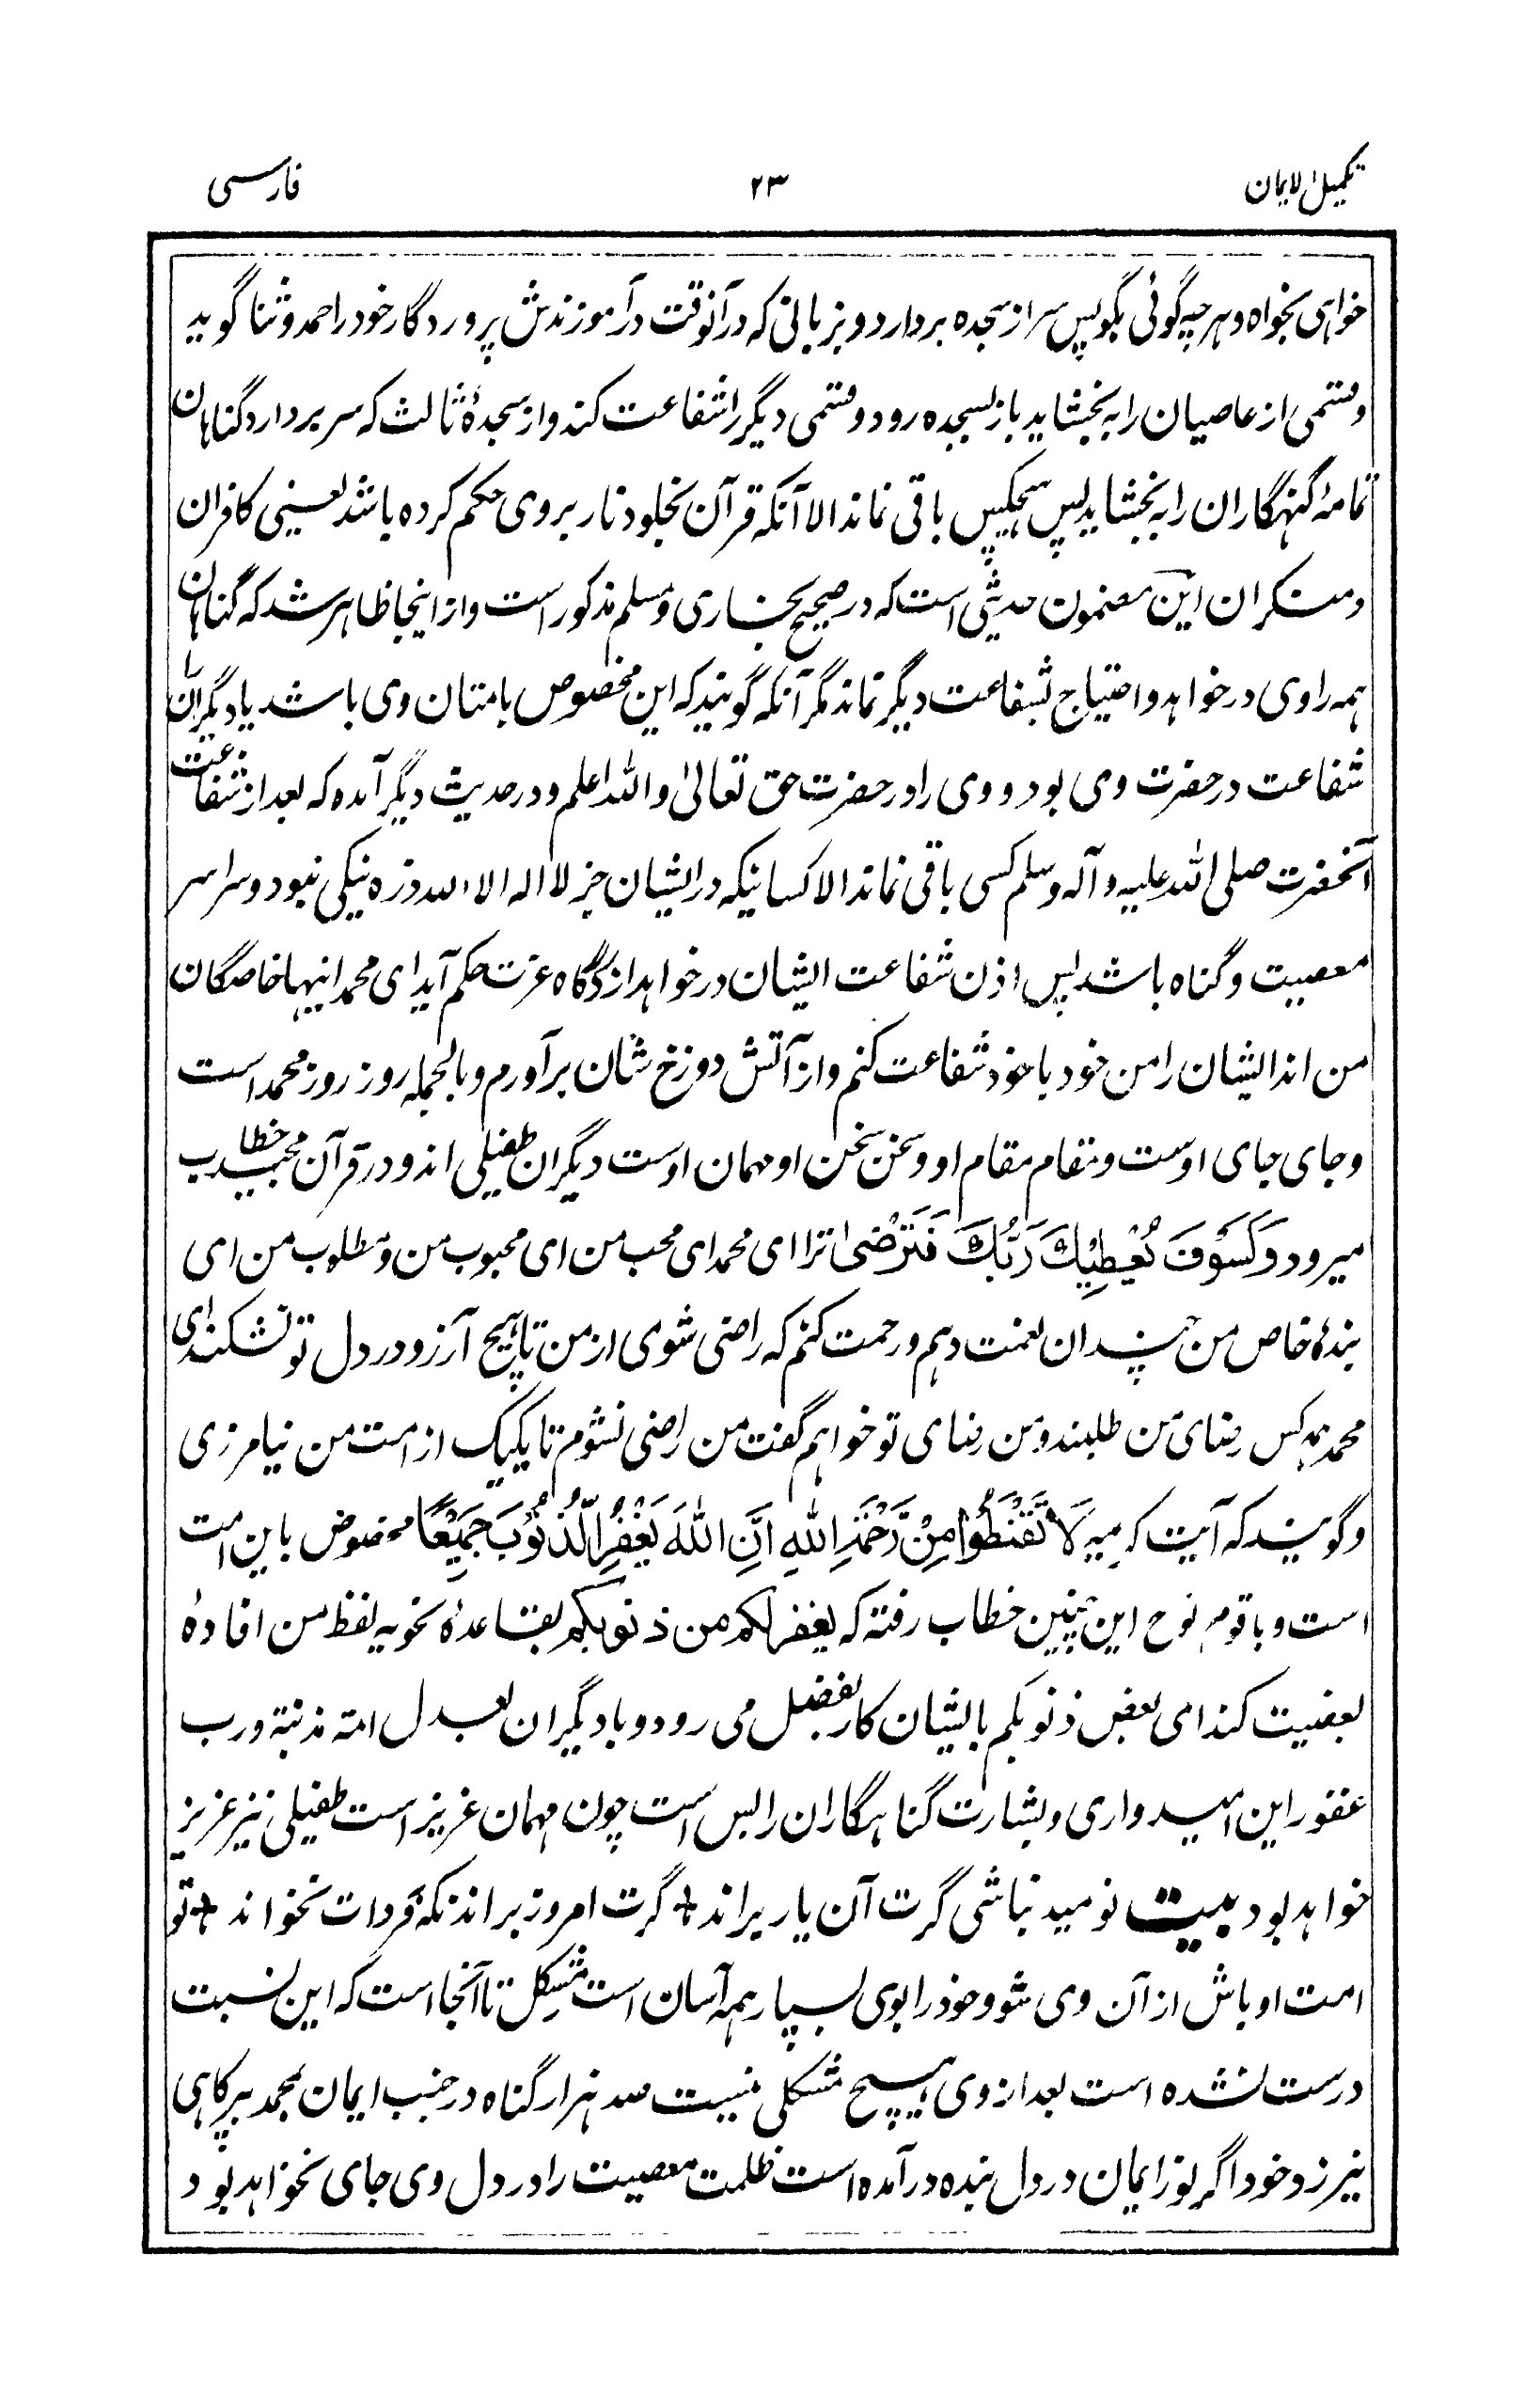 تکمیل الایمان ۲۳ فارسی
خواهی بخواه و هر چه گوئی بگو پس سر از سجده بردارد و بزبانی که در آنوقت در آموزندش پروردگار خود را حمد و ثنا گوید
و قسمی از عاصیان را به بخشاید باز بسجده رود و قسمی دیگر را شفاعت کند و از سجدهٔ ثالث که سر بردارد گناهان
تمامهٔ گنهگاران را به بخشاید پس هیچکس باقی نماند الا آنکه قرآن بخلود نار بروی حکم کرده باشد یعنی کافران
و منکران این مضمون حدیثی است که در صحیح بخاری و مسلم مذکور است و از اینجا ظاهر شد که گناهان
همه را وی درخواهد و احتیاج بشفاعت دیگر نماند مگر آنکه گویند که این مخصوص بامتان وی باشد یا دیگران را
شفاعت در حضرت وی بود و وی را در حضرت حق تعالیٰ والله اعلم و در حدیث دیگر آمده که بعد از شفاعت
آنحضرت صلی الله علیه و آله وسلم کسی باقی نماند الا کسانیکه در ایشان جز لا اله الا الله ذره نیکی نبود و سراسر
معصیت و گناه باشد پس اذن شفاعت ایشان درخواهد از درگاه عزت حکم آید ای محمد اینها خاصگان
من اند ایشان را من خود باخود شفاعت کنم و از آتش دوزخ شان برآورم و بالجمله روز روز محمد است
و جای جای اوست و مقام مقام او و سخن سخن او مهمان اوست دیگران طفیلی اند و در قرآن مجید خطاب
میرود وَلَسَوْفَ يُعْطِيْكَ رَبُّكَ فَتَرْضىٰ ترا ای محمد ای محب من ای محبوب من و مطلوب من ای
بندهٔ خاص من چندان نعمت دهم و رحمت کنم که راضی شوی از من تا هیچ آرزو در دل تو نشکند ای
محمد همه کس رضای من طلبند و من رضای تو خواهم گفت من راضی نشوم تا یکیک از امت من نیامرزی
و گویند که آیت کریمه لَا تَقْنَطُوْا مِنْ رَّحْمَةِ اللهِ اِنَّ اللهَ يَغْفِرُ الذُّنُوْبَ جَمِيْعًا مخصوص باین امت
است و با قوم نوح این چنین خطاب رفته که یغفر لکم من ذنوبکم بقاعدهٔ نحویه لفظ من افادهٔ
بعضیت کند ای بعض ذنوبکم بایشان کار بفضل می رود و با دیگران بعدل امة مذنبة و رب
غفور این امیدواری و بشارت گناهگاران را بس است چون مهمان عزیز است طفیلی نیز عزیز
خواهد بود بیت نومید نباشی گرت آن یار براند + گرت امروز براند نکه فردات نخواند + تو
امت او باش از آن وی شو و خود را بوی بسپار همه آسان است مشکل تا آنجا است که این نسبت
درست نشده است بعد از وی هیچ مشکلی نیست صد هزار گناه در جنب ایمان بمحمد بپر کاهی
نیرزد خود اگر نور ایمان در دل بنده درآمده است ظلمت معصیت را در دل وی جای نخواهد بود